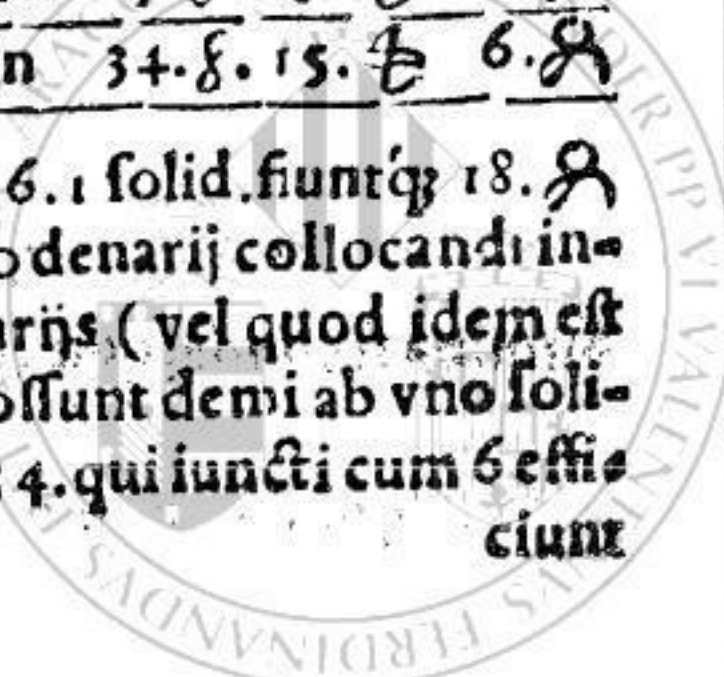 n 34.ꝭ. 15. ₶ 6.
6.1 ſolid.fiuntq́ꝫ 18.
o denarij collocandi in-
arijs ( vel quod idem eſt
oſſunt demi ab vno ſoli-
4.qui iuncti cum 6 effi-
ciunt